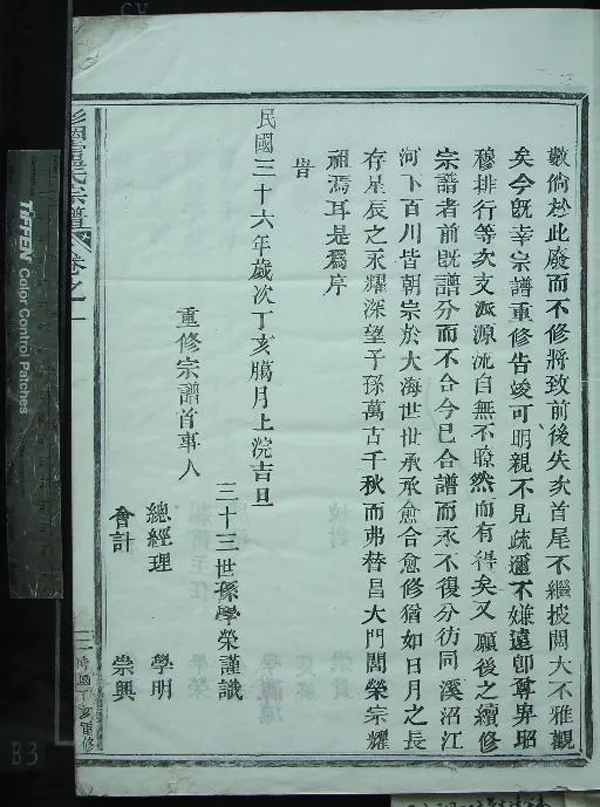 數倘於此廢而不修將致前後失次首尾不繼披閱大不雅觀
矣今既幸宗譜重修告竣可明親不見疏邇不嫌遠卽尊卑昭
穆排行等次支派源流自無不暸然而有得矣又願後之續修
宗譜者前既譜分而不合今已合譜而永不復分彷同溪沼江
河卞百川皆朝宗於大海世世承承愈合愈修猶如日月之長
存星辰之永耀深望子孫萬古千秋而弗替昌大門閭榮宗耀
祖焉耳是爲序
旹
民國三十六年歲次丁亥臈月上浣吉旦
三十三世孫學榮謹識
重修宗譜首事人
總經理 學明
會計 崇興
氏宗譜 卷之一 三 民國丁亥重修
TIFFEN Color Control Patches
B3